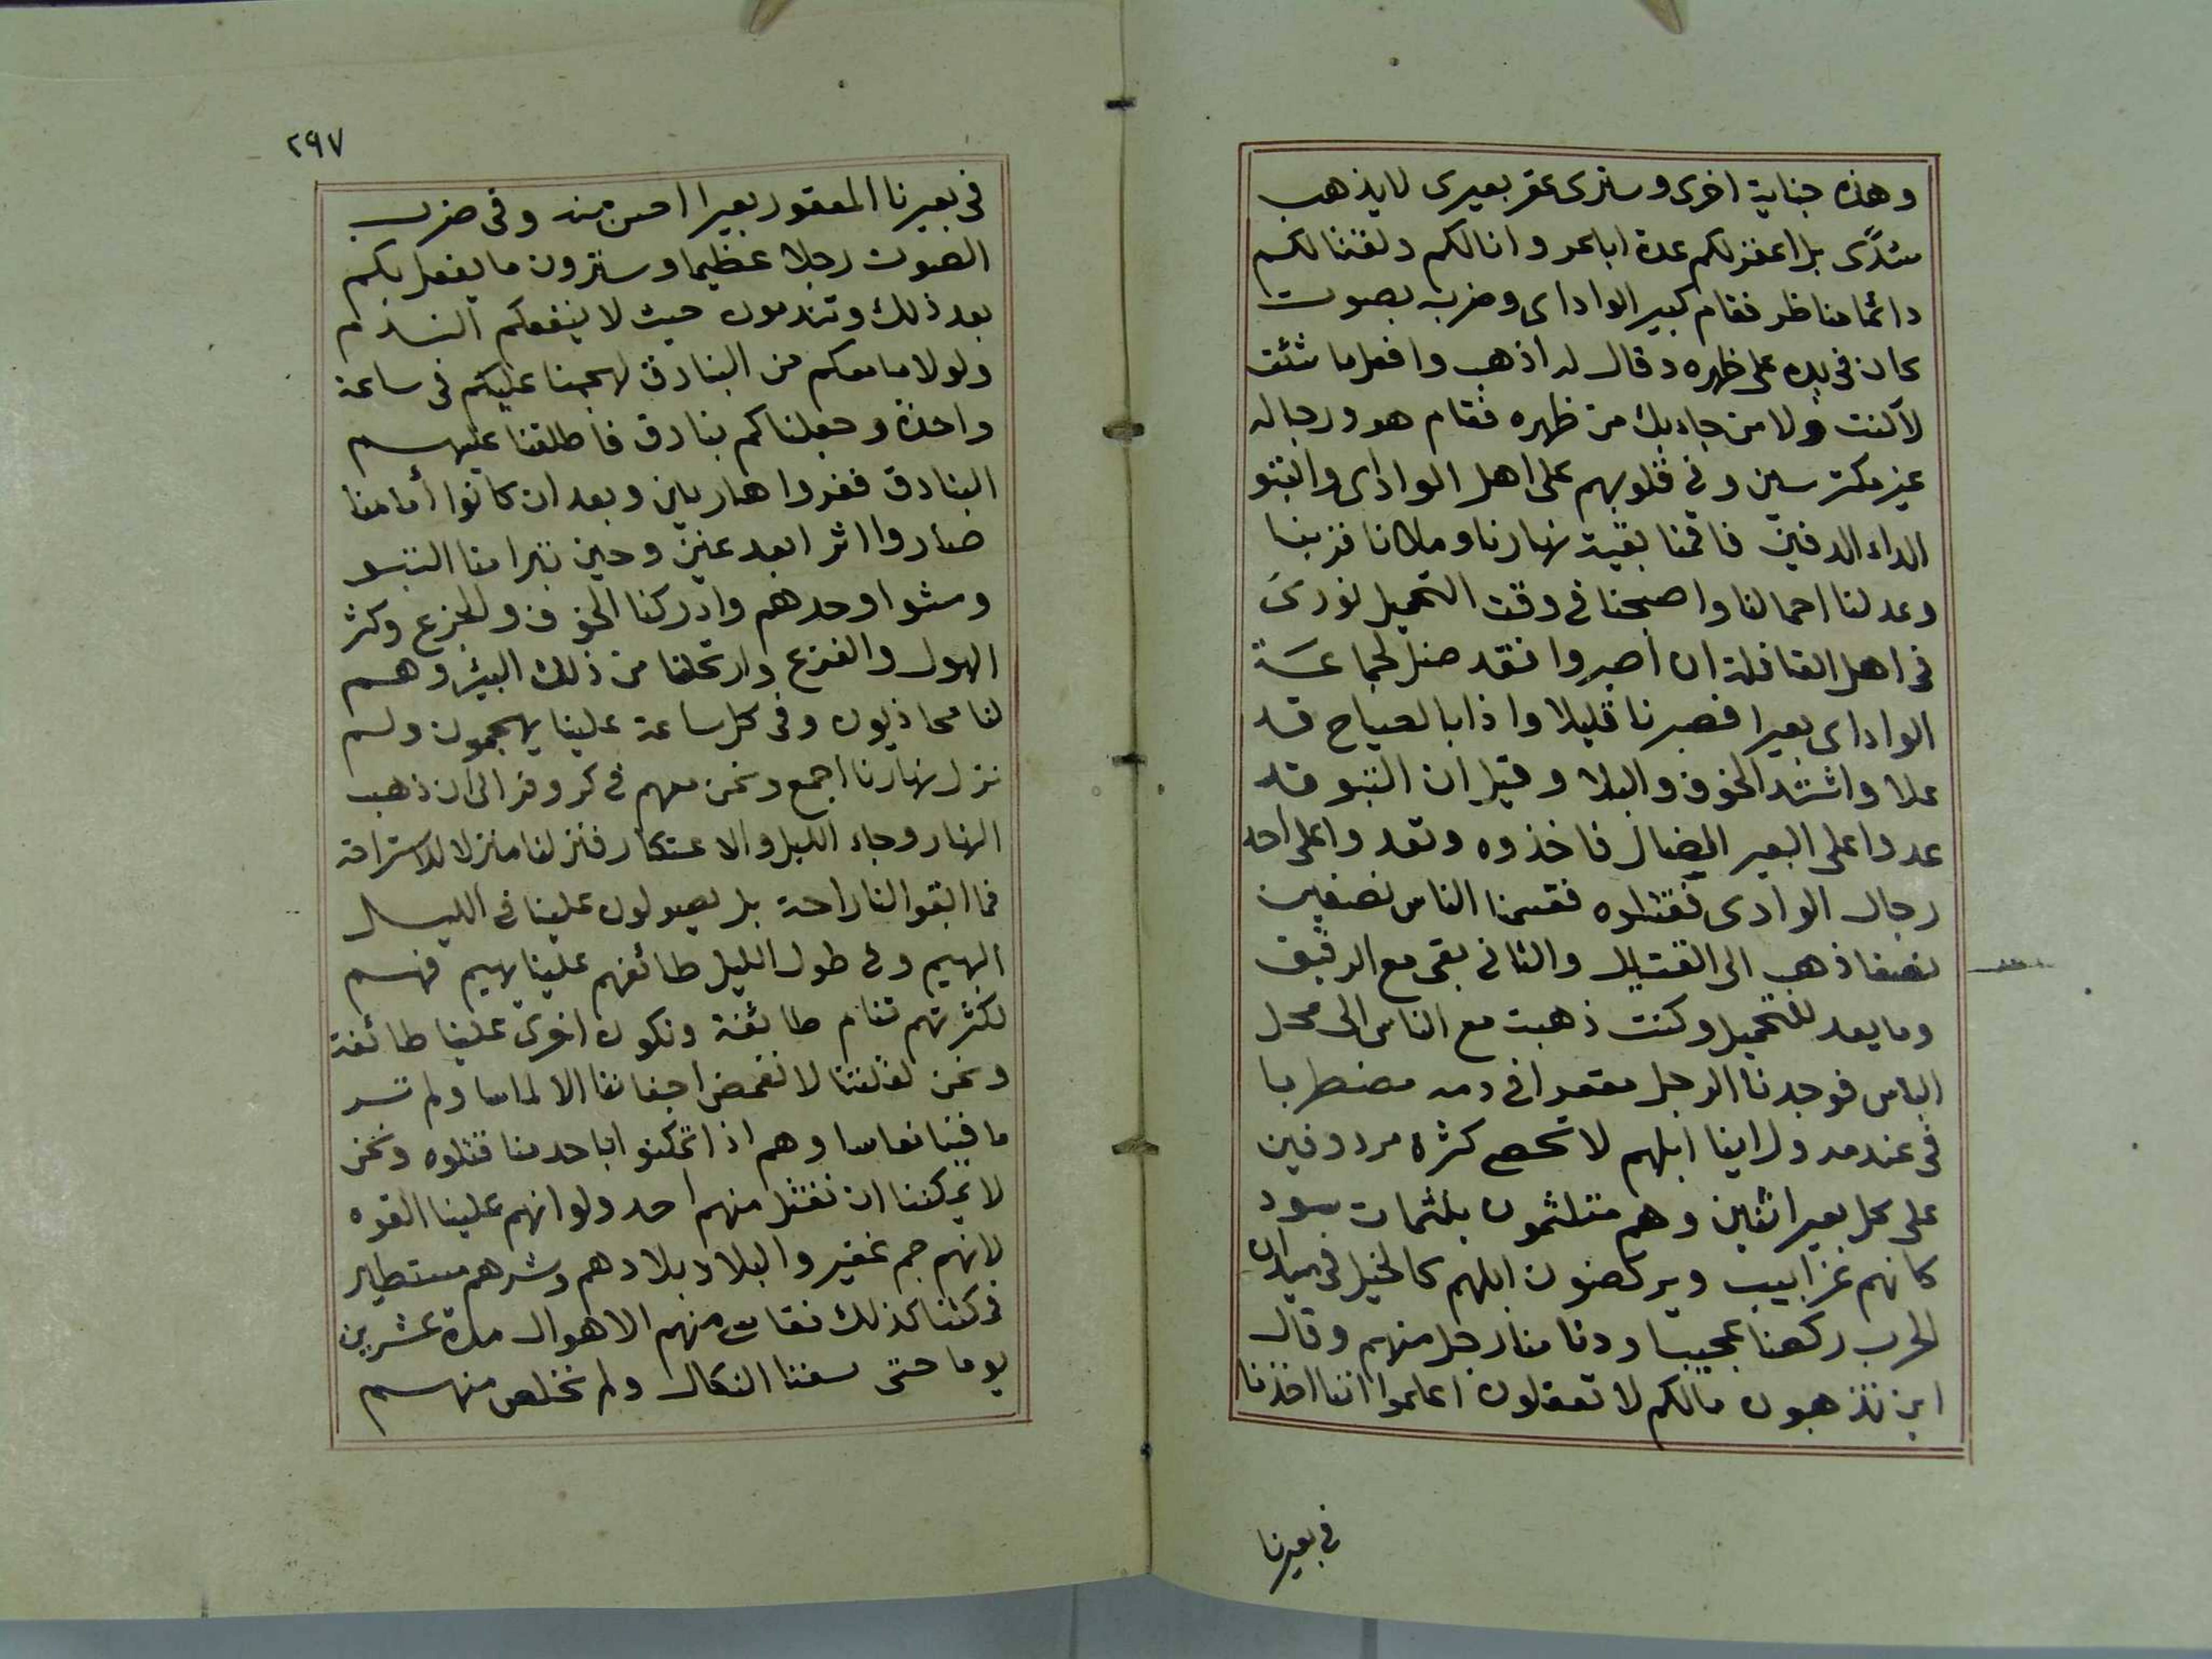 وهذه جناية اخرى وسترى عقر بعيرى لا يذهب
سُدًى بل اعقر لكم عدة اباعر وانا لكم ولقتالكم
دائما مناظر فقام كبير الواداى وضربه بصوت
كان فى يده على ظهره وقال له اذهب وافعل ما شئت
لا كنت ولا من جا بك من ظهره فقام هو ورجاله
غير مكترسين وفى قلوبهم على اهل الواداى والتبو
الداء الدفين فاقمنا بقية نهارنا وملانا قربنا
وعدلنا احمالنا واصبحنا فى وقت التحميل نودىَ
فى اهل القافلة ان اصبروا فقد ضل لجماعة
الواداى بعيرا فصبرنا قليلا واذا بالصياح قد
علا واشتد الخوف والبلا وقيل ان التبو قد
عدوا على البعير الضال فاخذوه وتعدوا على احد
رجال الوادى فقتلوه فقسمنا الناس نصفين
نصفا ذهب الى القتال والثانى بقى مع الرقيق
وما يعد للتحميل وكنت ذهبت مع الناس الى محل
الباس فوجدنا الرجل معقرا فى دمه مضطربا
فى عندمه وراينا ابلهم لا تحصى كثرة مردوفين
على كل بعير اثنين وهم متلثمون بلثمات سود
كانهم غرابيب ويركضون ابلهم كالخيل فى ميدان
الحرب ركضا عجيبا ودنا منا رجل منهم وقال
اين تذهبون مالكم لا تعقلون اعلموا اننا اخذنا
فى بعيرنا
٢٩٧
فى بعيرنا المعقور بعيرا احسن منه وفى ضرب
الصوت رجلا عظيما وسترون ما يفعل بكم
بعد ذلك وتندمون حيث لا ينفعكم الندم
ولولا ما معكم من البنادق لهجمنا عليكم فى ساعة
واحدة وجعلناكم بنادق فاطلقنا عليهم
البنادق ففروا هاربين وبعد ان كانوا أمامنا
صاروا اثر ابعد عين وحين تبرا منا التبو
ومشوا وحدهم وادركنا الخوف والجزع وكثر
الهول والفزع وارتحلنا من ذلك البئر وهم
لنا محاذيون وفى كل ساعة علينا يهجمون ولم
نزل نهارنا اجمع ونحن معهم فى كر وفر الى ان ذهب
النهار وجاء الليل والاعتكار فنزلنا منزلا للاستراحة
فما ابقوا لنا راحة بل يصولون علينا فى الليل
البهيم وفى طول الليل طائفهم علينا يهيم فهم
لكثرتهم تنام طائفة وتكون اخرى علينا طائفة
ونحن لقلتنا لا تغمض اجفاننا الا لماما ولم تر
ما فينا نعاسا وهم اذا تمكنوا باحد منا قتلوه ونحن
لا يمكننا ان نقتل منهم احد ولو انهم علينا القوه
لانهم جم غفير والبلاد بلادهم وشرهم مستطير
فمكثنا كذلك نقاسى منهم الاهوال مدة عشرين
يوما حتى سئمنا النكال ولم نخلص منهم